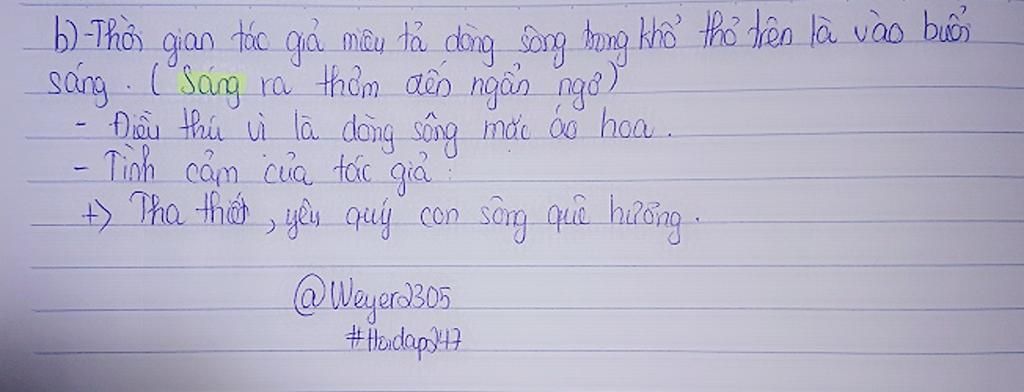 b) - Thời gian tác giả miêu tả dòng sông trong khổ thơ trên là vào buổi
sáng. ( Sáng ra thơm đến ngẩn ngơ)
- Điều thú vì là dòng sông mặc áo hoa.
- Tình cảm của tác giả :
+) Tha thiết, yêu quý con sông quê hương.
@Weyer2305
#Hoidap247